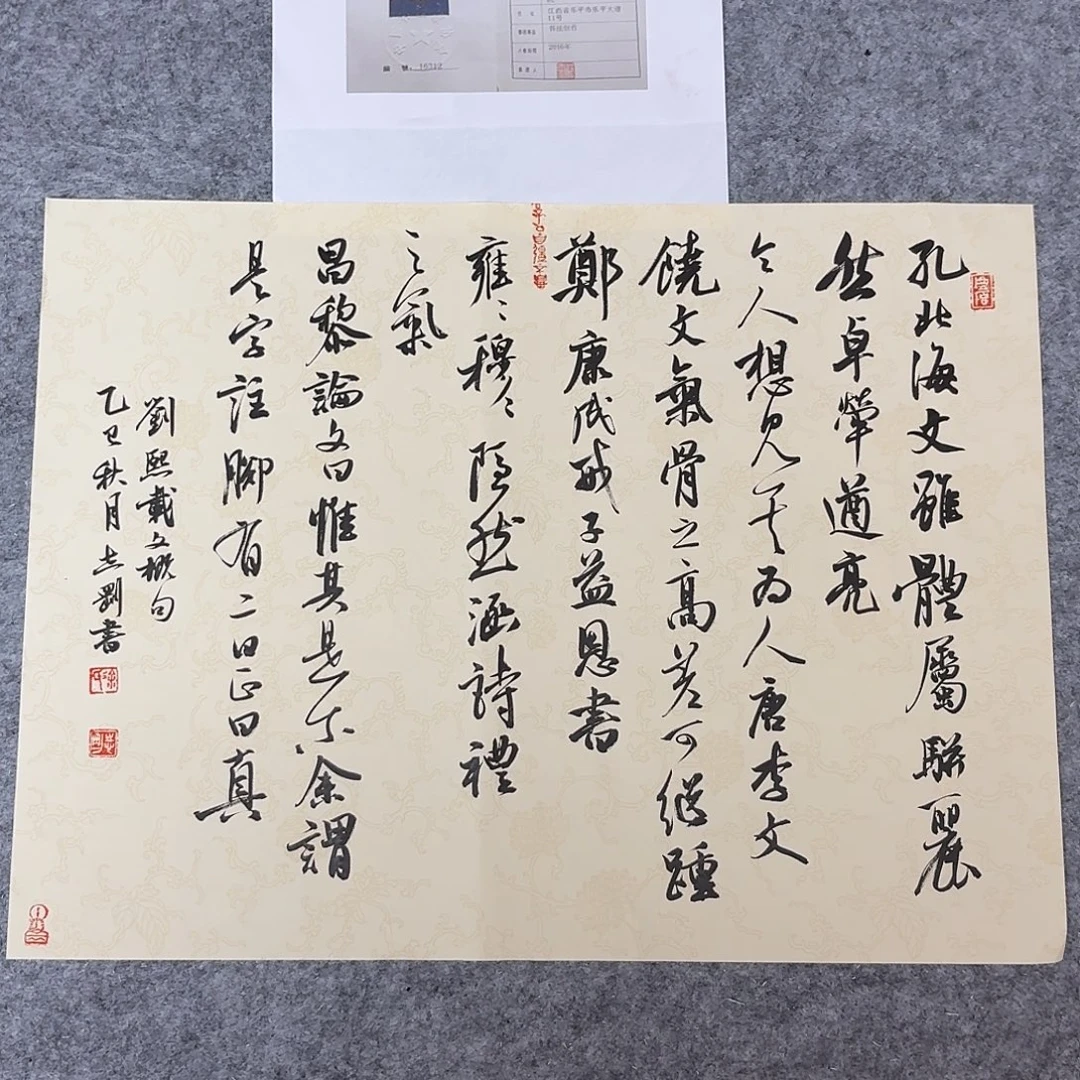 11号
2016年
孔北海文雖體屬駢麗
然卓犖遒亮
令人想見其為人唐李文
饒文氣骨之高差可繼踵
鄭康成戒子益恩書
雍〻穆〻隱然涵詩禮
之氣
昌黎論文曰惟其是尔余謂
是字註腳有二曰正曰真
劉熙載文概句
乙巳秋月志剛書